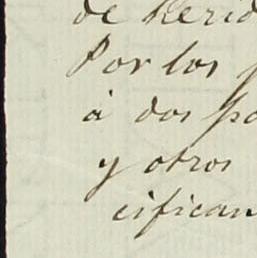 de herid
Por los p
á dos pa
y otros
cifican